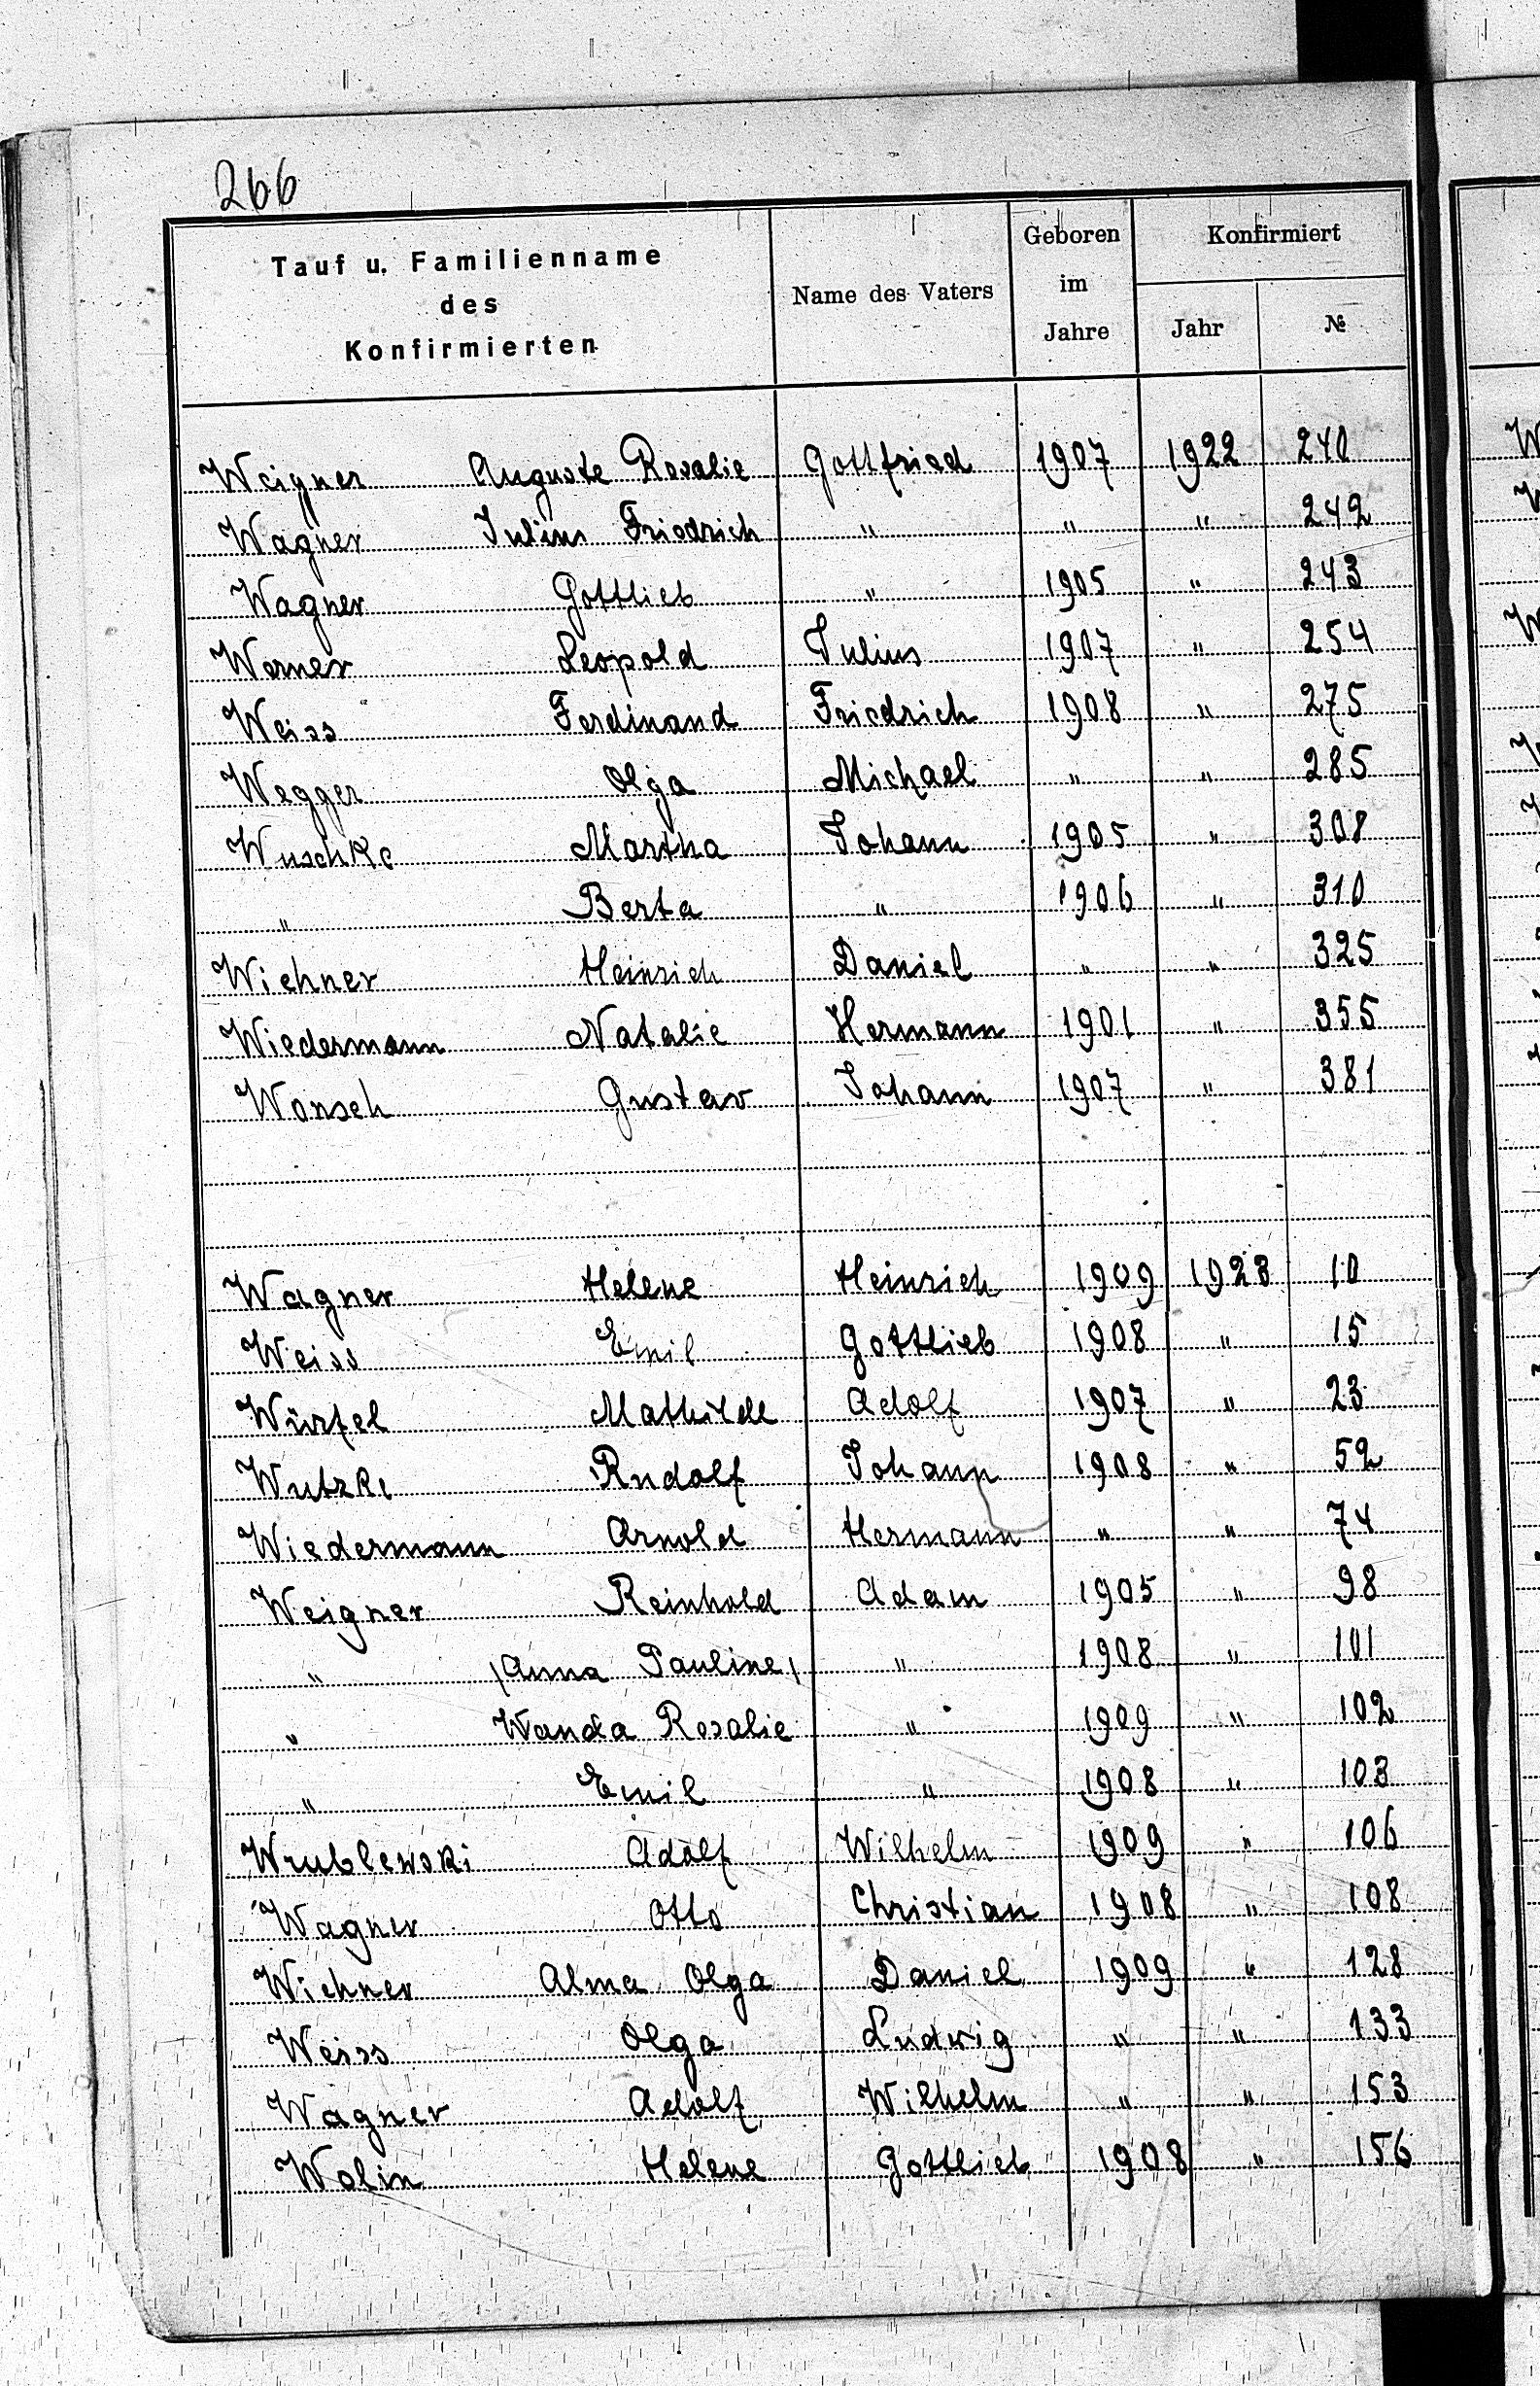 266
Tauf u. Familienname des Konfirmierten | Name des Vaters | Geboren im Jahre | Konfirmiert Jahr | №
Weigner Auguste Rosalie Gottfried 1907 1922 240
Wagner Julius Friedrich " " " 242
Wagner Gottlieb " 1905 " 243
Werner Leopold Julius 1907 " 254
Weiss Ferdinand Friedrich 1908 " 275
Wegger Olga Michael " " 285
Wuschke Martha Johann 1905 " 308
" Berta " 1906 " 310
Wichner Heinrich Daniel " " 325
Wiedermann Natalie Hermann 1901 " 355
Wonsch Gustav Johann 1907 " 381
Wagner Helene Heinrich 1909 1923 10
Weiss Emil Gottlieb 1908 " 15
Würfel Mathilde Adolf 1907 " 23
Wutzke Rudolf Johann 1908 " 52
Wiedermann Arnold Hermann " " 74
Weigner Reinhold Adam 1905 " 98
" Anna Pauline " 1908 " 101
" Wanda Rosalie " 1909 " 102
" Emil " 1908 " 103
Wrublewski Adolf Wilhelm 1909 " 106
Wagner Otto Christian 1908 " 108
Wichner Alma Olga Daniel 1909 " 128
Weiss Olga Ludwig " " 133
Wagner Adolf Wilhelm " " 153
Wolin Helene Gottlieb 1908 " 156